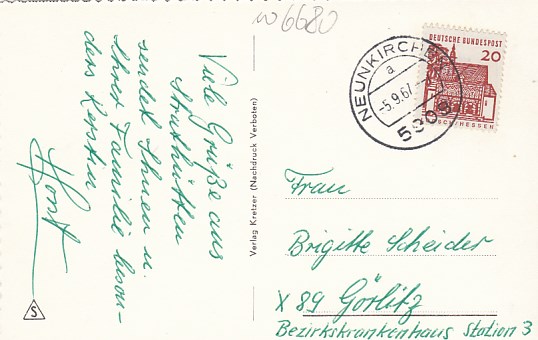 w 6680
Viele Grüße aus
Struthütten
sendet Ihnen u.
Ihrer Familie beson-
ders Kerstin
Horst
S
Verlag Kretzer (Nachdruck Verboten)
DEUTSCHE BUNDESPOST
20
LORSCH/HESSEN
NEUNKIRCHEN
a
-5.9.67
Frau
Brigitte Scheider
X 89 Görlitz
Bezirkskrankenhaus Station 3